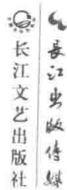 长江文艺出版社
长江出版传媒